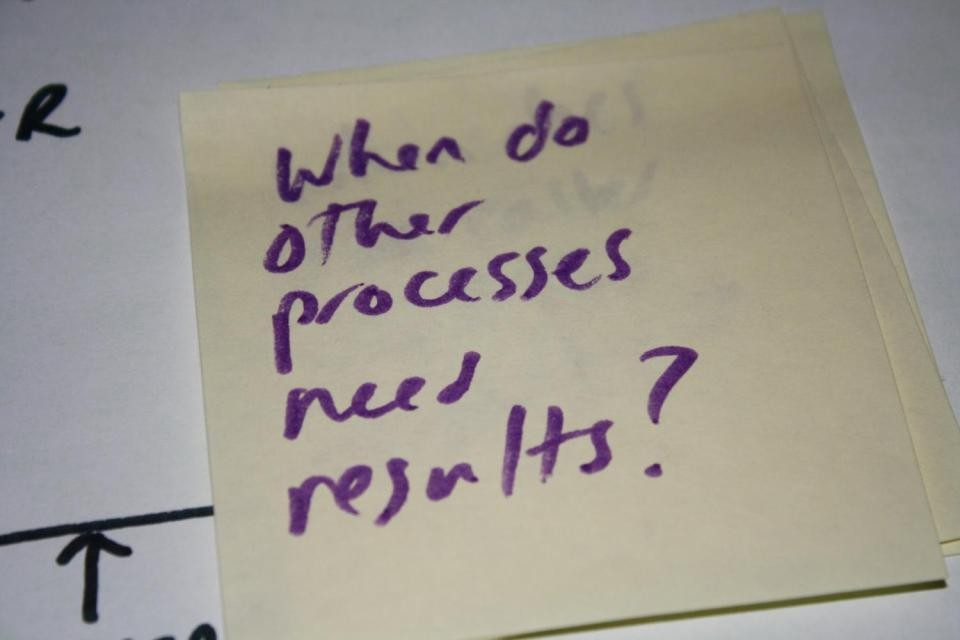 R
When do
other
processes
need
results?